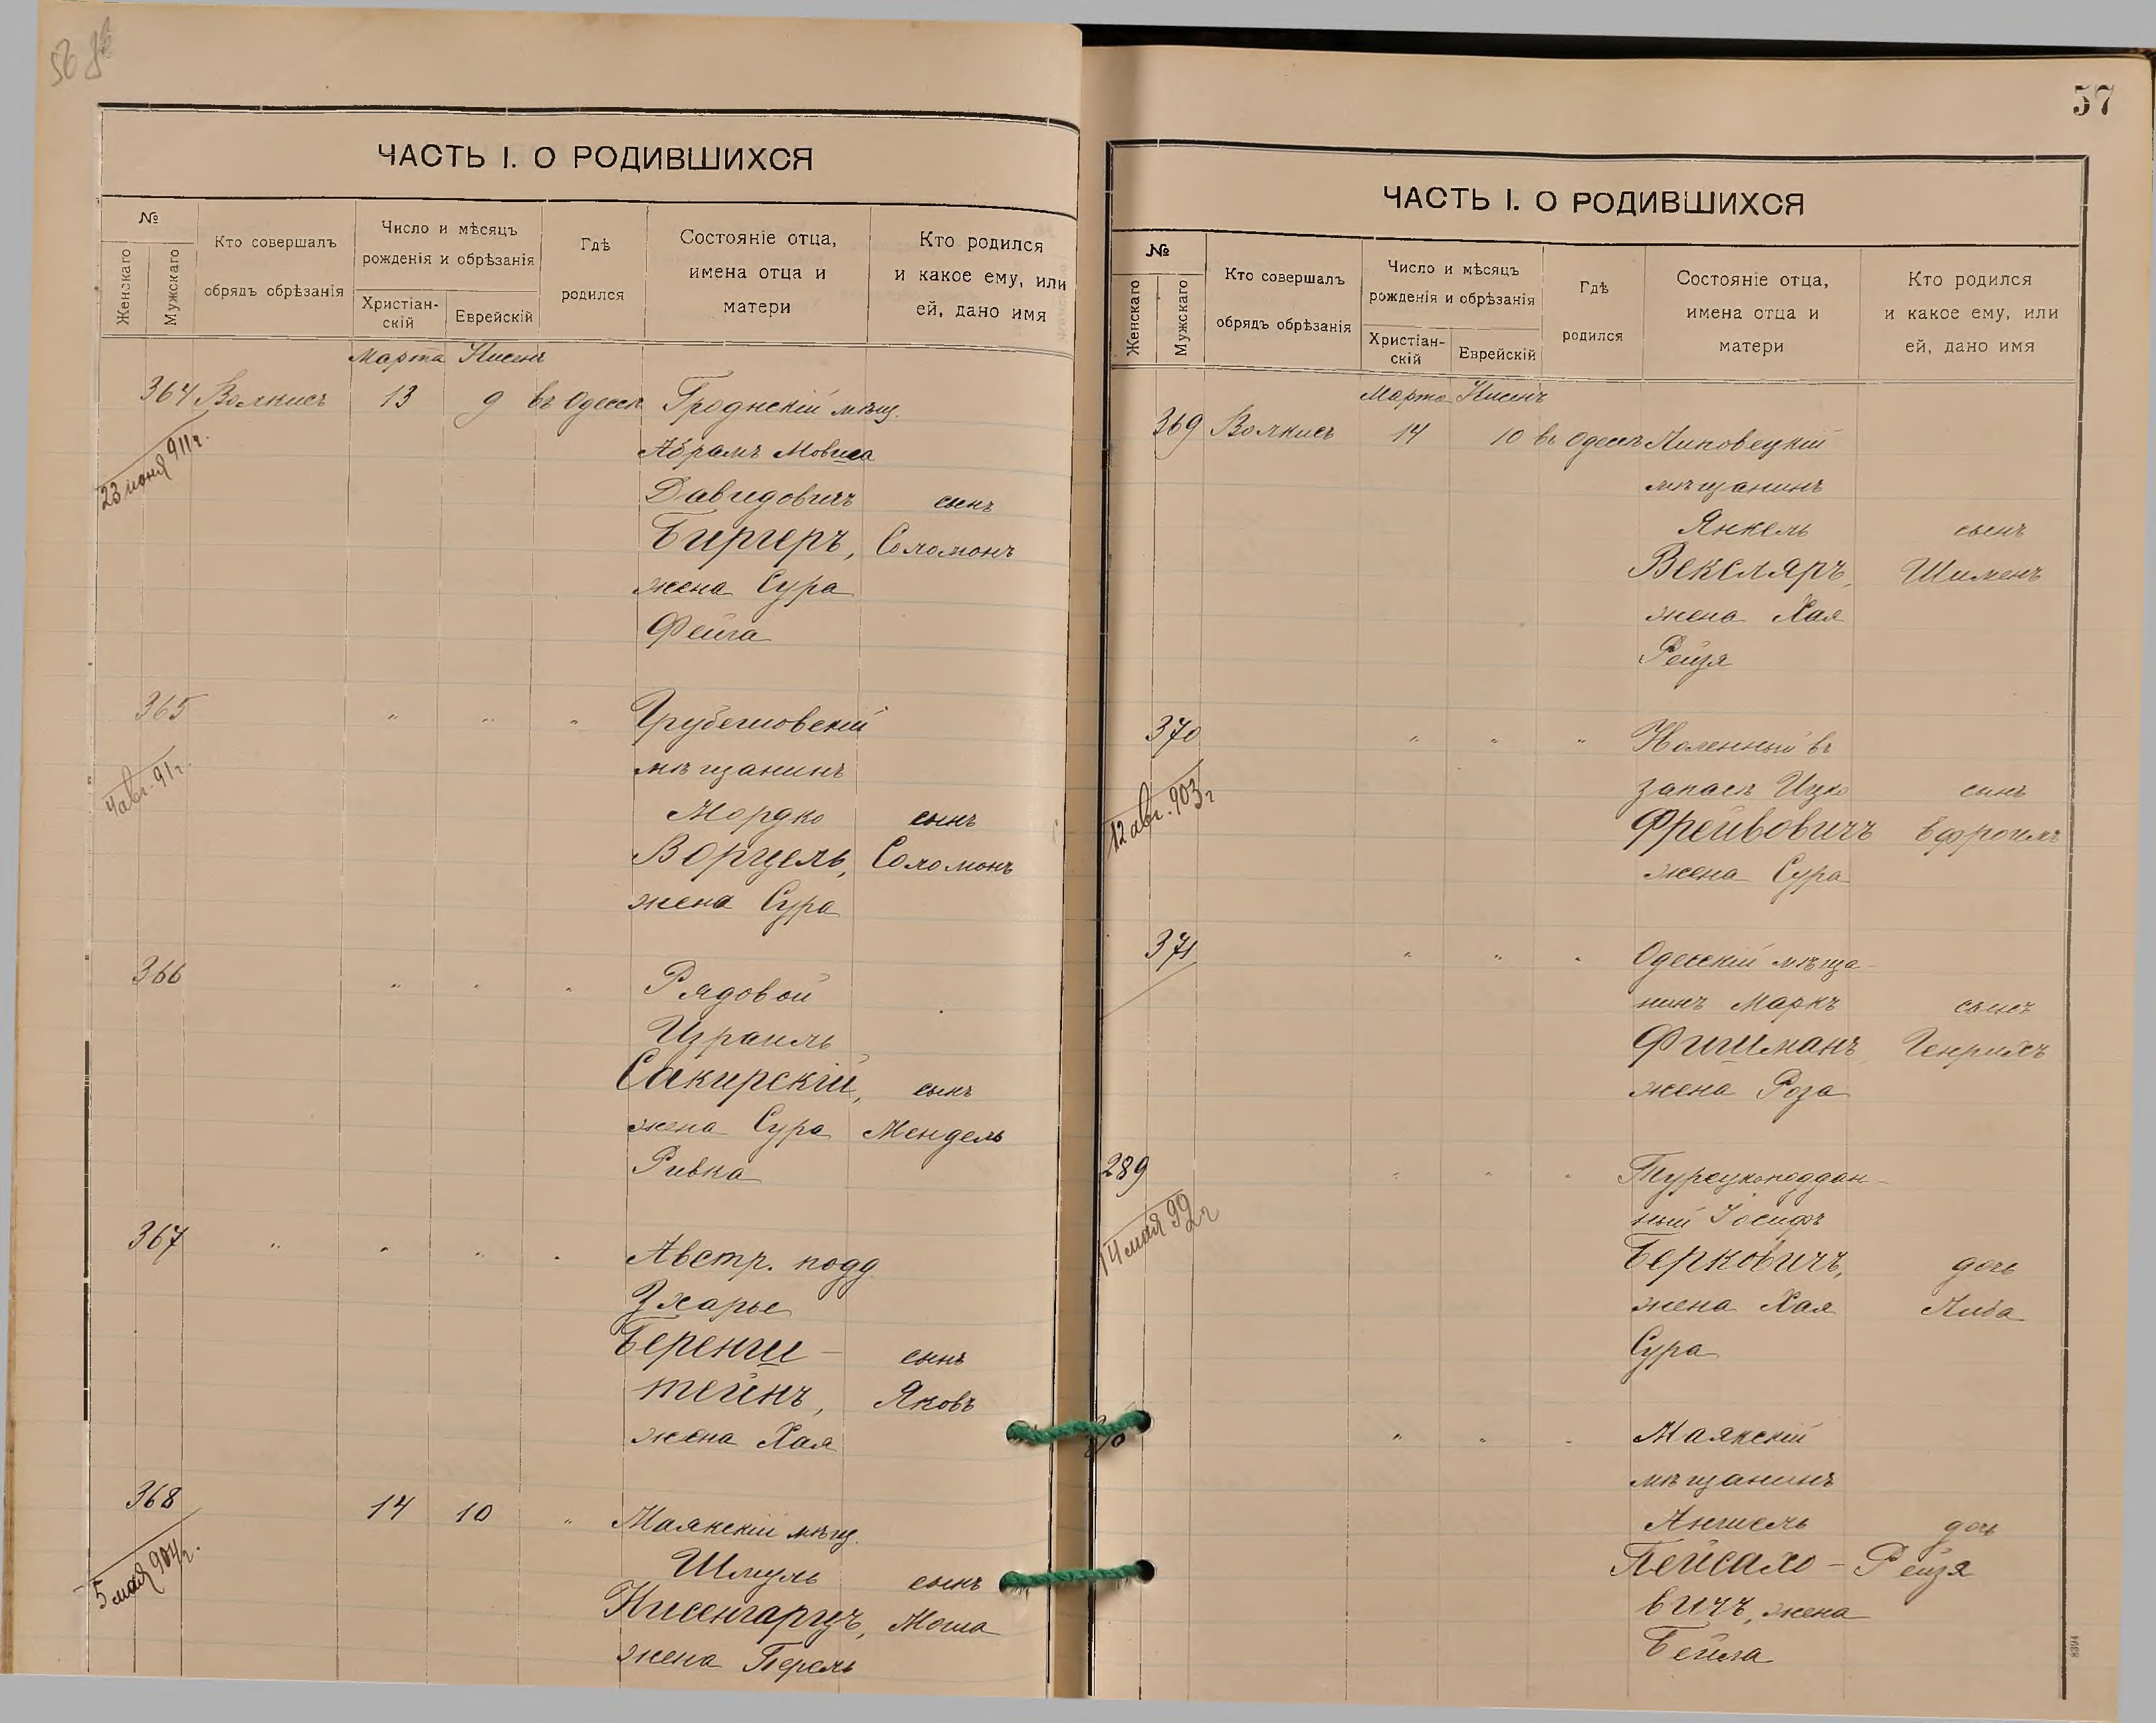 ЧАСТЬ I. О РОДИВШИХСЯ
№
Женскаго
Мужскаго
Кто совершалъ
обрядъ обрѣзанія
Число и мѣсяцъ
рожденія и обрѣзанія
Христіан-
скій
Еврейскій
Гдѣ
родился
Состояніе отца,
имена отца и
матери
Кто родился
и какое ему, или
ей, дано имя
Марта Нисенъ
364 Волкисъ 13 9 въ Одессѣ Гроднскій мѣщ.
23 июня 911г.
Абрамъ Мовша
Давидовичъ сынъ
Биргеръ, Соломонъ
жена Сура
Фейга
365 " " " Грубешовскій
4 авг. 91 г.
мѣщанинъ
Мордко сынъ
Ворцель, Соломонъ
жена Сура
366 " " " Рядовой
Израиль
Сакирскій, сынъ
жена Сура Мендель
Ривка
367 " " " " Австр. подд
Зхарье
Беренш-
тейнъ, сынъ
жена Хая Яковъ
368 14 10 " Маякскій мѣщ.
5 мая 904г.
Шмуль сынъ
Нисенгарцъ, Моша
жена Перель
57
ЧАСТЬ I. О РОДИВШИХСЯ
№
Женскаго
Мужскаго
Кто совершалъ
обрядъ обрѣзанія
Число и мѣсяцъ
рожденія и обрѣзанія
Христіан-
скій
Еврейскій
Гдѣ
родился
Состояніе отца,
имена отца и
матери
Кто родился
и какое ему, или
ей, дано имя
Марта Нисенъ
369 Волкисъ 14 10 въ Одессѣ Липовецкій
мѣщанинъ
Янкель сынъ
Векслярь, Шименъ
жена Хая
Рейзя
370 " " " Уволенный въ
12 авг. 903г
запасъ Ицко сынъ
Фрейвовичъ Ефроимъ
жена Сура
371 " " " Одесскій мѣща-
нинъ Маркъ сынъ
Фишманъ Генрихъ
жена Роза
289 " " " Турецкоподдан-
14 мая 99 г
ный Іосифъ
Берковичъ, дочь
жена Хая Либа
Сура
" " " Маякскій
мѣщанинъ
Аншель дочь
Пейсахо- Рейзя
вичъ, жена
Бейла
8394